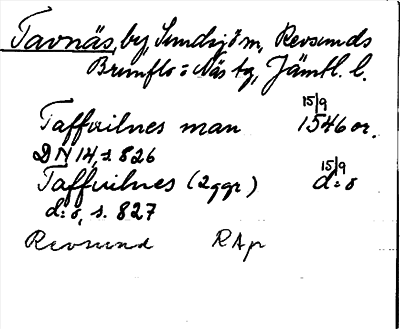 Tavnäs, by, Sundsjö sn, Revsunds
Brunflo o Näs tg, Jämtl. l.
Taffuilnes man 15/9 1546 or.
DN 14, s. 826
Taffuilnes (2 ggr) 15/9 d:o
d:o, s. 827
Revsund RAp